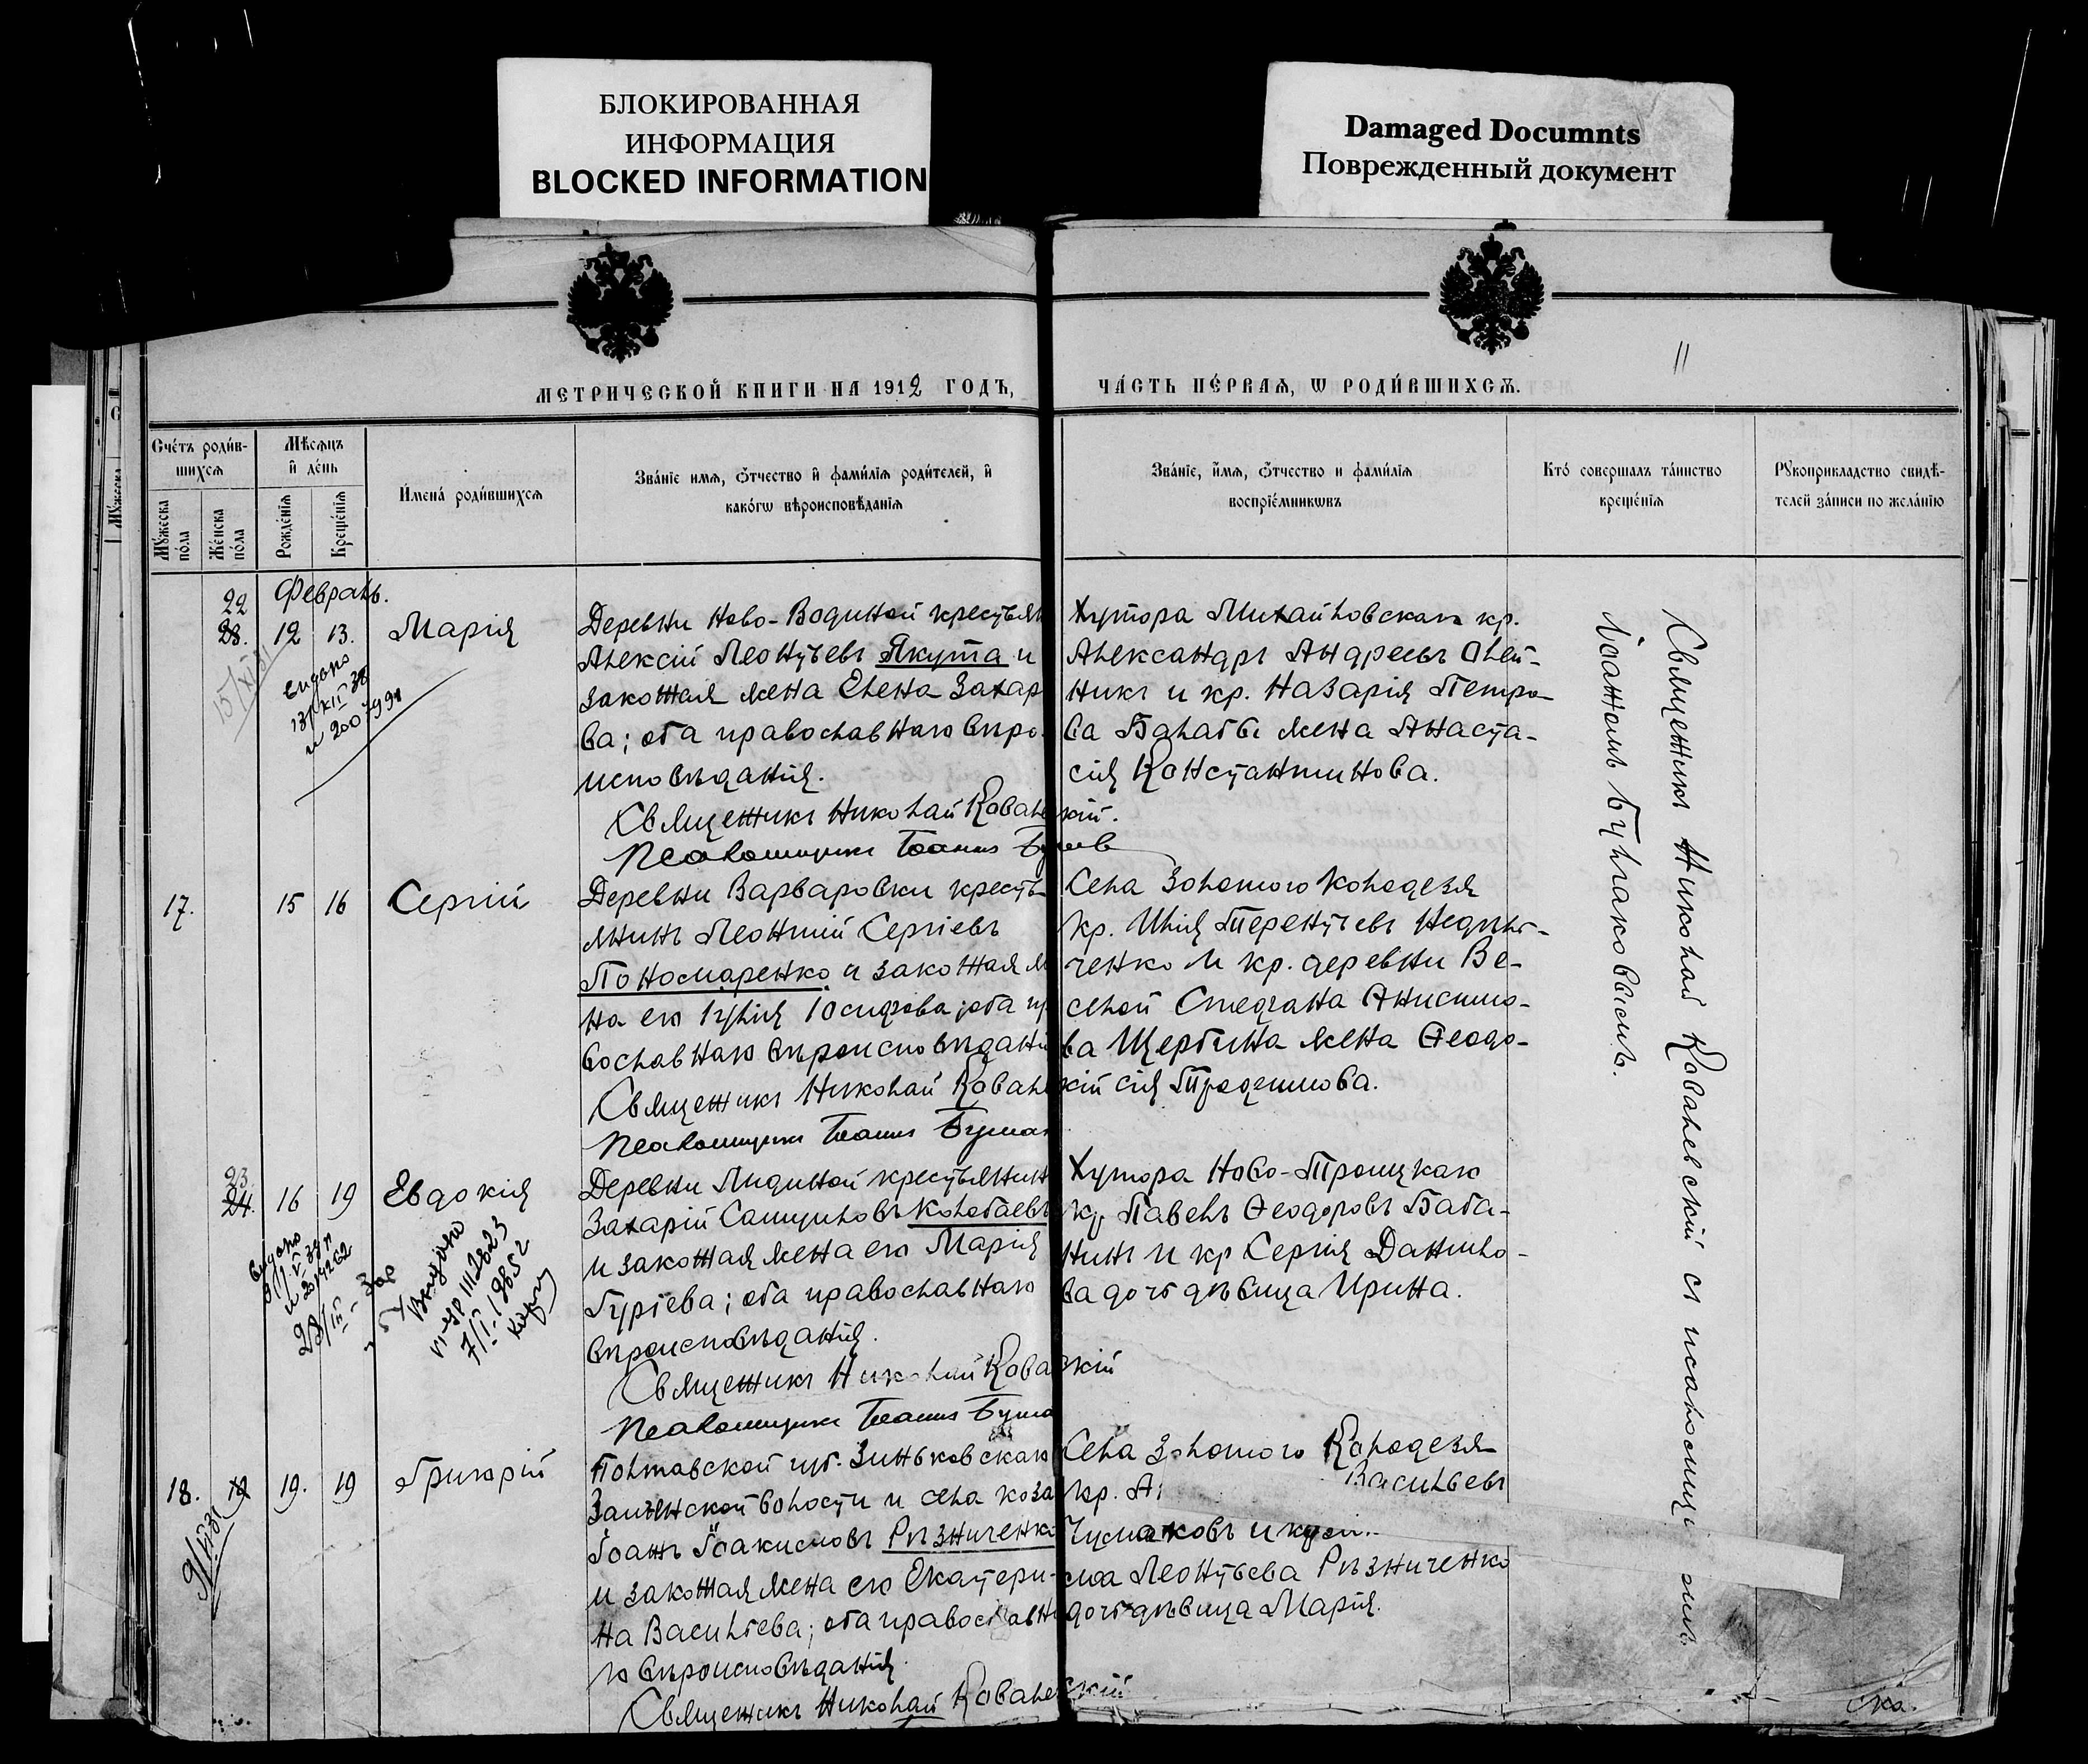 БЛОКИРОВАННАЯ
ИНФОРМАЦИЯ
BLOCKED INFORMATION
Damaged Documnts
Поврежденный документ
11
МЕТРИЧЕСКОЙ КНИГИ НА 1912 ГОДЪ,
ЧАСТЬ ПЕ́РВАЯ, Ѡ РОДИ́ВШИХСѦ.
Сче́тъ роди́в-
шихсѧ
Мѣ́сѧцъ
и҆ де́нь
Мꙋ́жеска
по́ла
Же́нска
по́ла
Рожде́нїѧ
Креще́нїѧ
И҆мена̀ роди́вшихсѧ
Зва́нїе имѧ, ѻ҆́тчество и҆ фами́лїѧ роди́телей, и҆
како́гѡ вѣроисповѣ́данїѧ
Зва́нїе, и҆́мѧ, ѻ҆́тчество и фами́лїѧ
воспрїе́мникѡвъ
Кто̀ соверша́лъ та́инство
креще́нїѧ
Рꙋкоприкладство свидѣ́-
телей за́писи по жела́нїю
Февраль.
22
23.
12
13.
Марія
Деревни Ново-Водиной крестьян
Алексій Леонтьевъ Якута и
законная жена Елена Захар
ва; оба православнаго вѣро
исповѣданія.
Священникъ Николай Ковалевскій.
Псаломщикъ Іоаннъ
Хутора Михайловскаго кр.
Александръ Андреевъ Олей-
никъ и кр. Назарія Петро-
ва Балабы жена Анаста-
сія Константинова.
17.
15
16
Сергій
Деревни Варваровки кресть
янинъ Леонтій Сергіевъ
Пономаренко и законная ж
на его Юлія Іосифова; оба пр
вославнаго вѣроисповѣданія
Священникъ Николай Ковалевскій
Псаломщикъ Іоаннъ
Села Золотого Колодезя
кр. Илія Терентьевъ
ченко и кр. деревни Ве-
селой Стефана Анисимо-
ва Щербина жена Ѳеодо-
сія Трофимова.
23.
24.
16
19
Евдокія
Деревни Лидиной крестьянинъ
Захарій Самуиловъ Колбаевъ
и законная жена его Марія
Гуріева; оба православнаго
вѣроисповѣданія.
Священникъ Николай Ковалевскій
Псаломщикъ Іоаннъ
Хутора Ново-Троицкаго
кр. Павелъ Ѳеодоровъ Баба-
нинъ и кр Сергія Данило-
ва дочь дѣвица Ирина.
18.
19.
19
Григорій
Полтавской губ. Зиньковскаго
волости и села коза
Іоаннъ Іоакимовъ Рѣзниченко
и законная жена его Екатери-
на Васильева; оба православн
го вѣроисповѣданія.
Священникъ Николай Ковалевскій
Села Золотого Колодезя
кр. А
Васильевъ
Чумаковъ и
Леонтьева Рѣзниченко
дочь дѣвица Марія.
Священникъ Николай Ковалевскій съ псаломщи
Іоанномъ